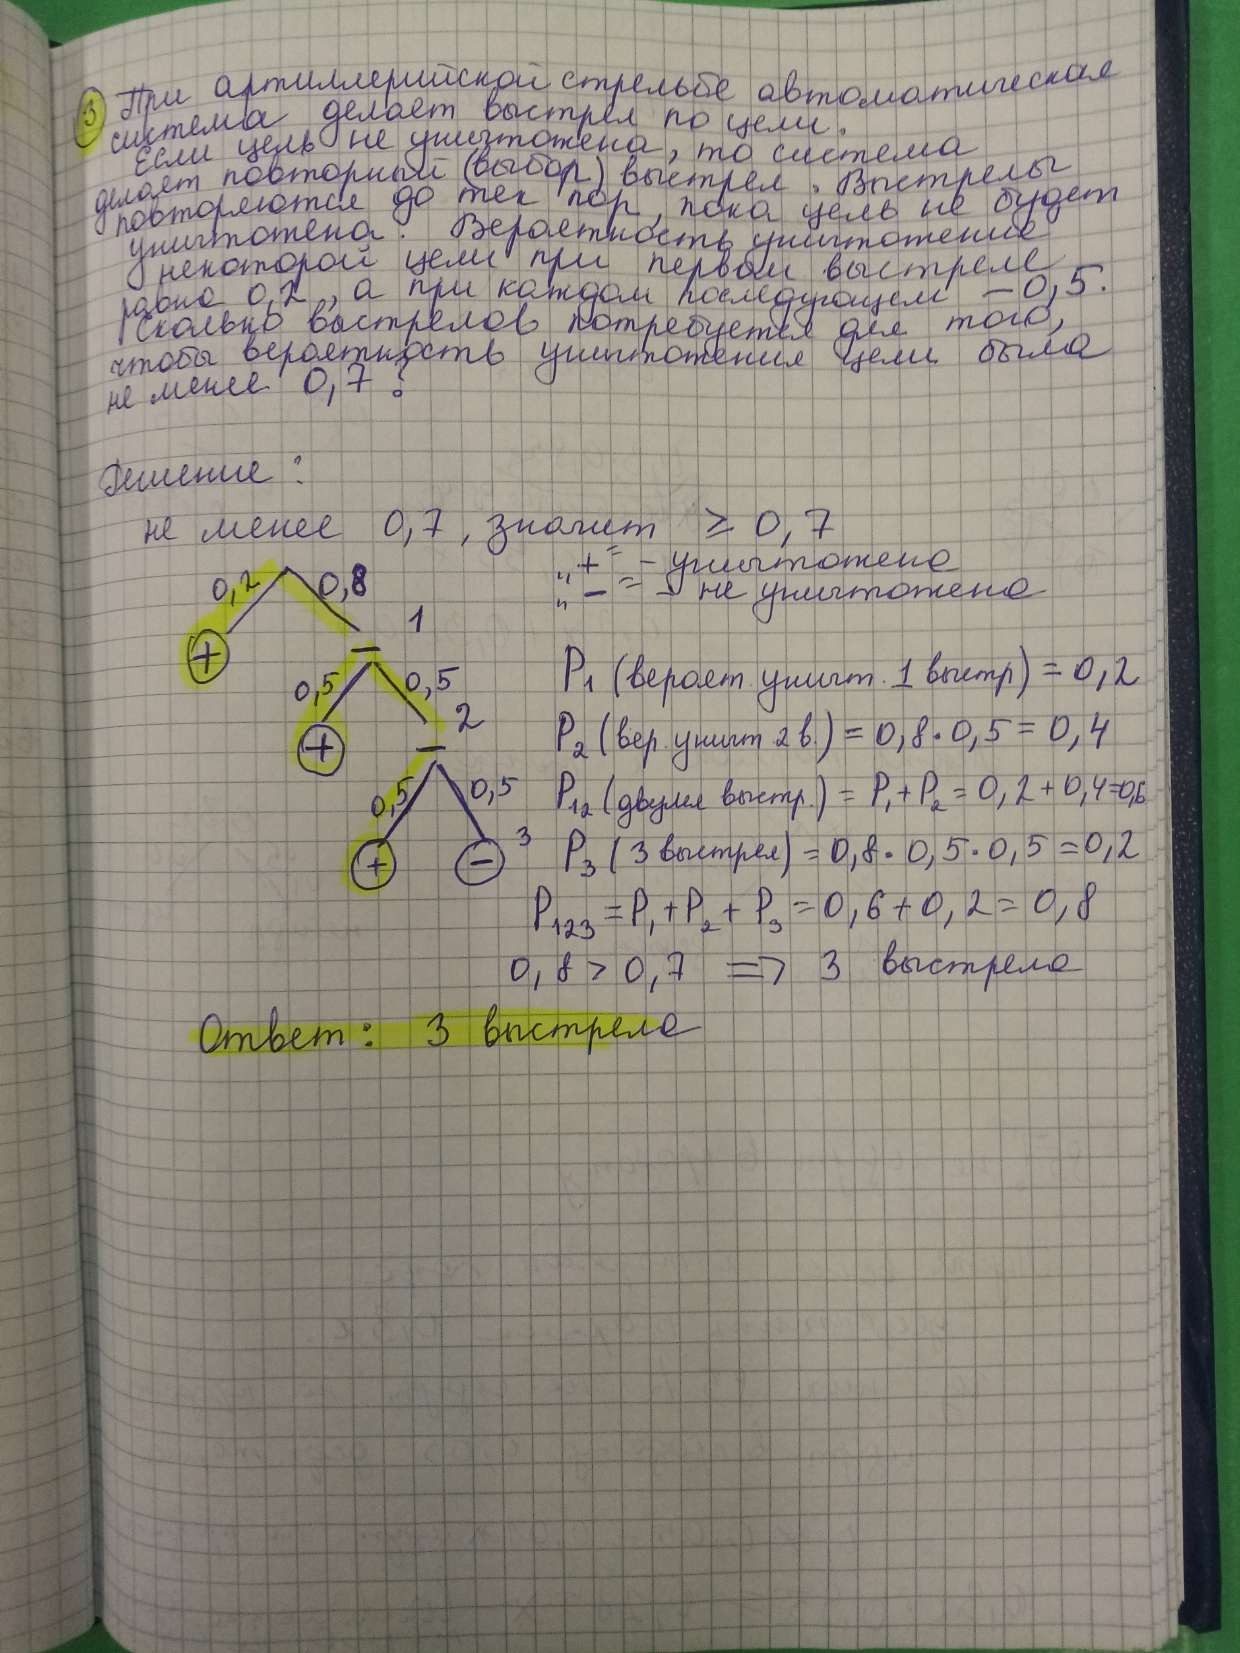 3 При артиллерийской стрельбе автоматическая
система делает выстрел по цели.
Если цель не уничтожена, то система
делает повторный (выбор) выстрел. Выстрелы
повторяются до тех пор, пока цель не будет
уничтожена. Вероятность уничтожение
некоторой цели при первом выстреле
равна 0,2, а при каждом последующем – 0,5.
Сколько выстрелов потребуется для того,
чтобы вероятность уничтожения цели была
не менее 0,7?
Решение:
не менее 0,7, значит ≥ 0,7
„+" – уничтожено
„–" – не уничтожено
0,2 0,8
+ – 1
0,5 0,5
+ – 2
0,5 0,5
+ – 3
P₁ (вероят. уничт. 1 выстр) = 0,2
P₂ (вер. уничт 2 в.) = 0,8 · 0,5 = 0,4
P₁₂ (двумя выстр.) = P₁ + P₂ = 0,2 + 0,4 = 0,6
P₃ (3 выстрел) = 0,8 · 0,5 · 0,5 = 0,2
P₁₂₃ = P₁ + P₂ + P₃ = 0,6 + 0,2 = 0,8
0,8 > 0,7 => 3 выстрела
Ответ: 3 выстрела